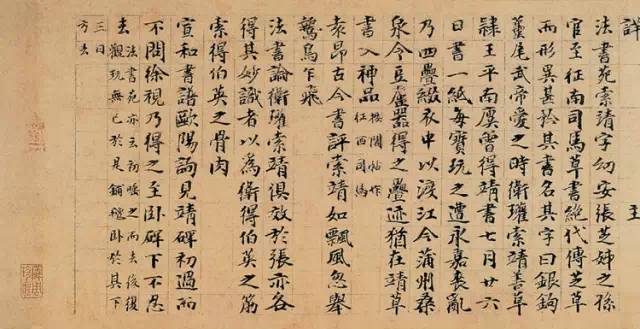 詳 至
法書苑索靖字幼安張芝姊之孫
官至征南司馬草書絕代傳芝草
而形異甚矜其書名其字曰銀鉤
蠆尾武帝愛之時衛瓘索靖善草
隸王平南廙曾得靖書七月廿六
日書一紙每寶玩之遭永嘉喪亂
乃四疊綴衣中以渡江今蒲州桑
泉令豆盧器得之疊迹猶在靖草
書入神品 按閣帖作
征西司馬
袁昂古今書評索靖如飄風忽舉
鷙鳥乍飛
法書論衛瓘索靖俱效於張亦各
得其妙識者以為衛得伯英之筋
索得伯英之骨肉
宣和書譜歐陽詢見靖碑初過而
不問徐視乃得之至卧碑下不忍
去 法書苑亦云初唾之而去後復
觀玩無已於是鋪氈卧於其下
三日
方去